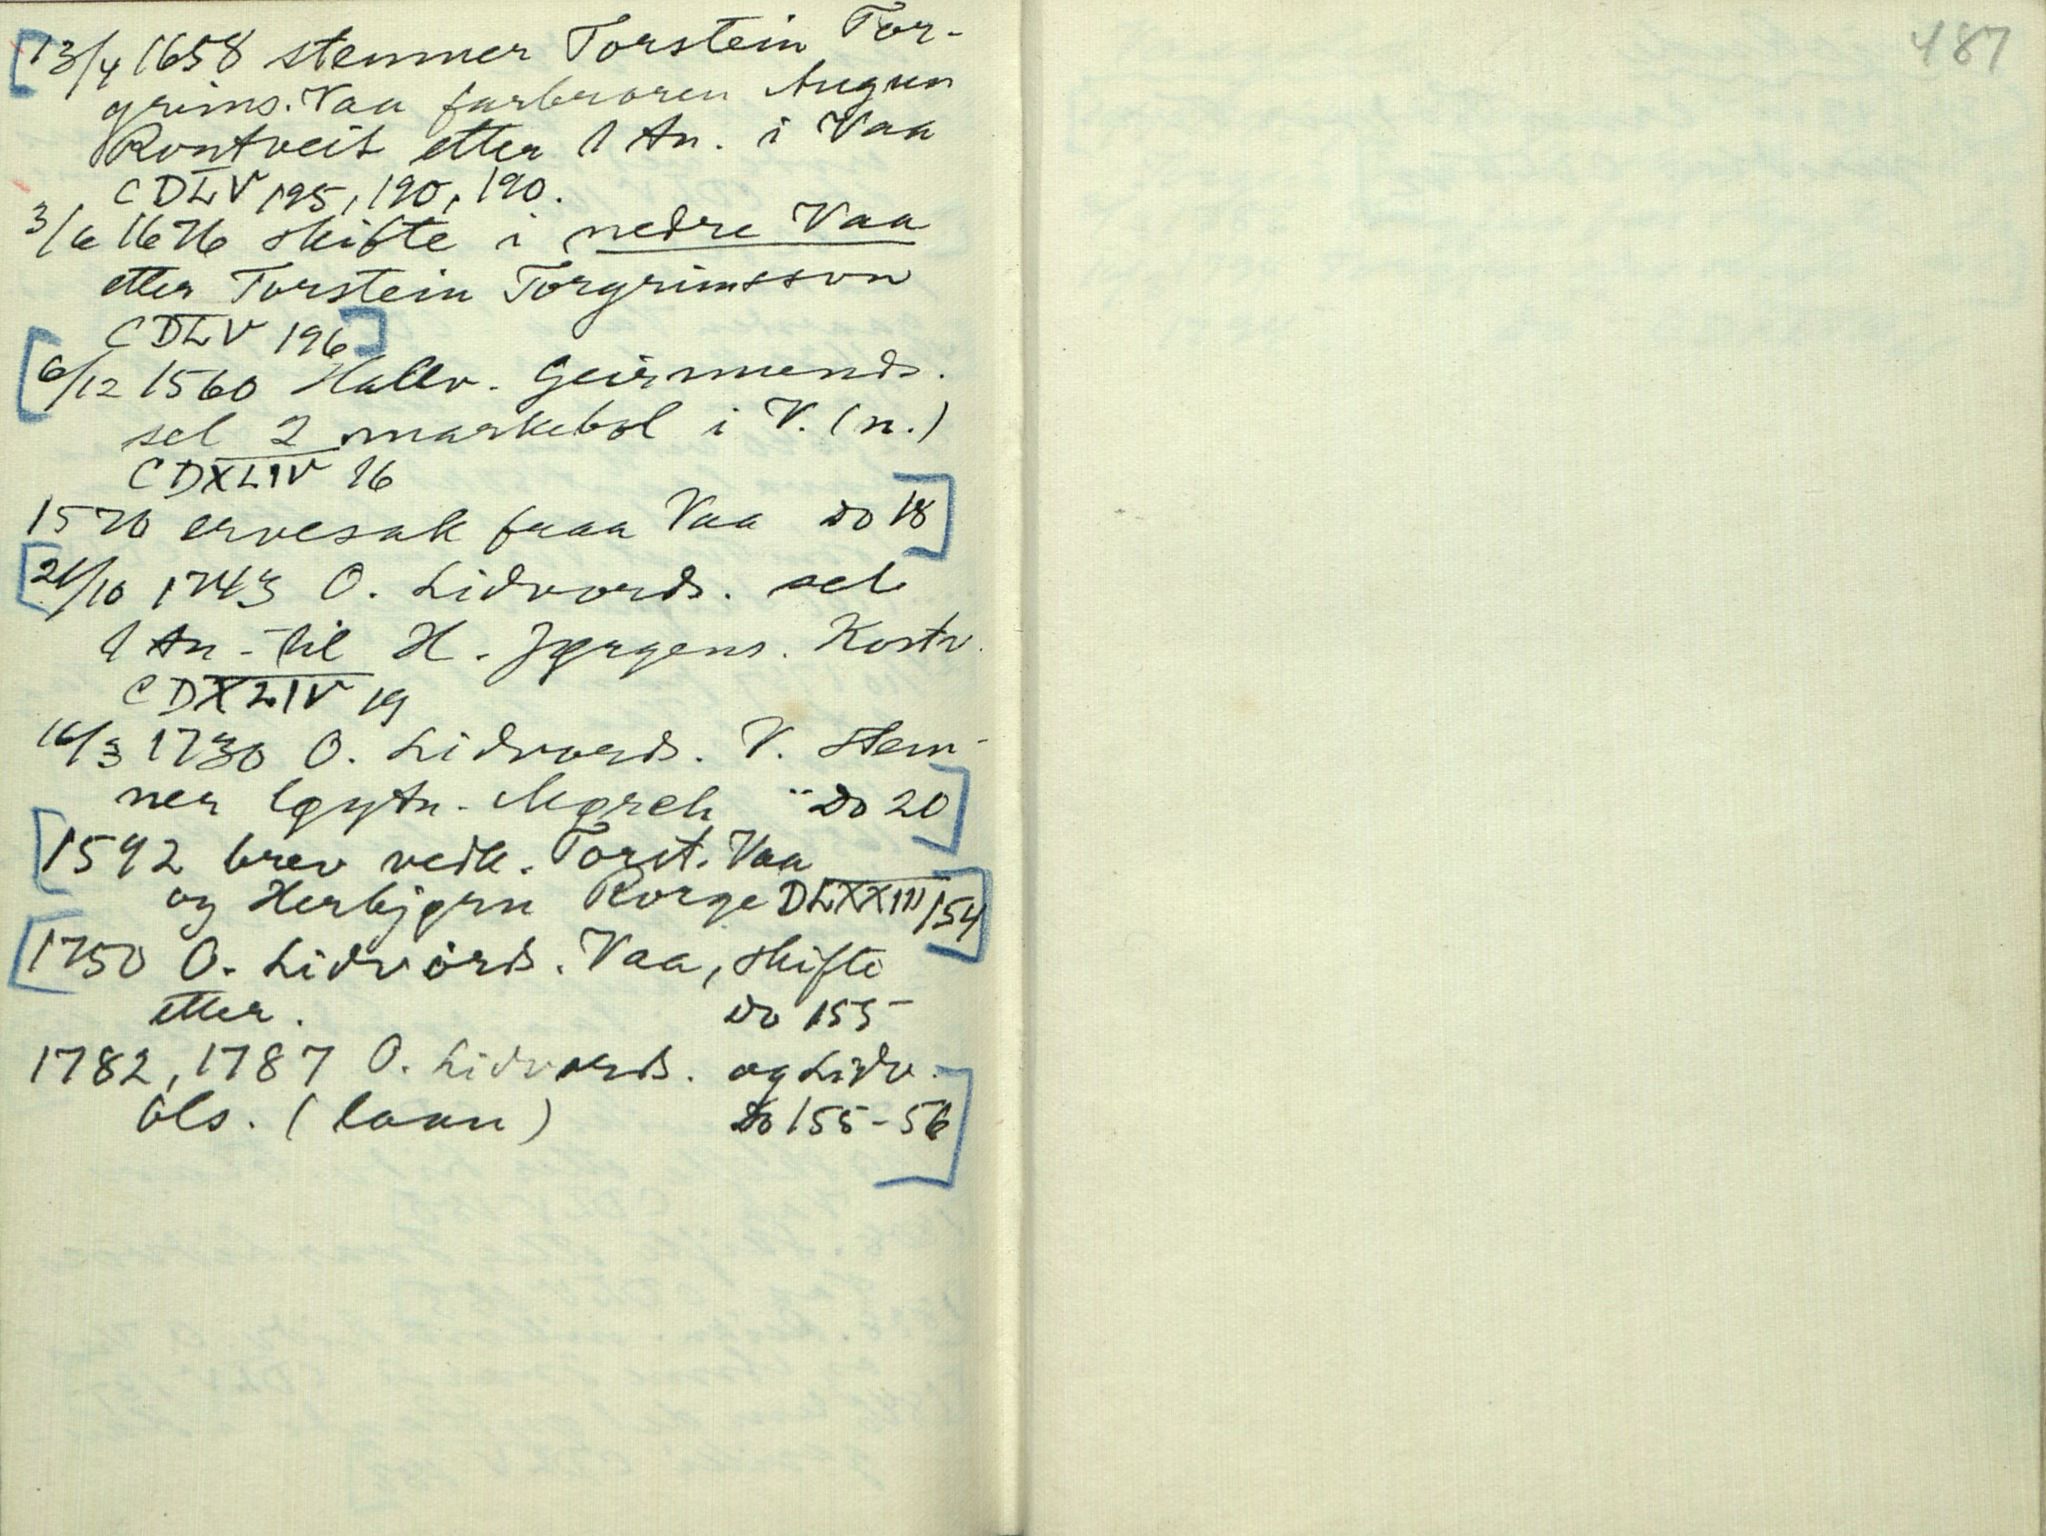 13/4 1658 stemner Torstein Tor-
grims. Vaa farbroren Augun
Rontveit etter 1 An. i Vaa
CDLV 195, 190, 190.
3/6 1676 skifte i nedre Vaa
etter Torstein Torgrimsson
CDLV 196
6/12 1560 Hallv. Geirmunds.
sel 2 markebol i V. (n.)
CDXLIV 16
1570 ervesak fraa Vaa do 18
21/10 1743 O. Lidvords. sel
1 An - til H. Jørgens. Kostv.
CDXLIV 19
16/3 1730 O. Lidvords. V. stem-
ner løytn. Mørch " do 20
1592 brev vedk. Torst. Vaa
og Herbjørn Rorge DLXXIII 154
1750 O. Lidvords. Vaa, skifte
etter. do 155
1782, 1787 O. Lidvords. og Lidv.
Ols. (laan) do 155-56
487